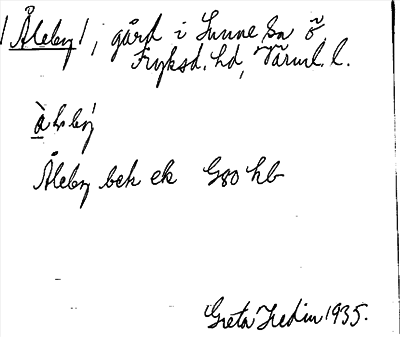 /Åleby/, gård i Sunne sn Ö
Fryksd. hd, Värml. l.
Åleby bek ek G80 hb
Greta Hedin 1935.